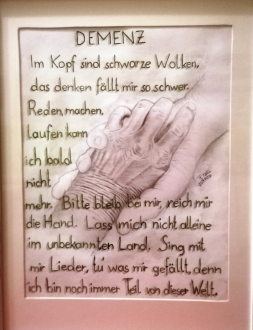 DEMENZ
Im Kopf sind schwarze Wolken,
das denken fällt mir so schwer.
Reden, machen,
laufen kann
ich bald
nicht
mehr. Bitte bleib bei mir, reich mir
die Hand. Lass mich nicht alleine
im unbekannten Land. Sing mit
mir Lieder, tu' was mir gefällt, denn
ich bin noch immer Teil von dieser Welt.